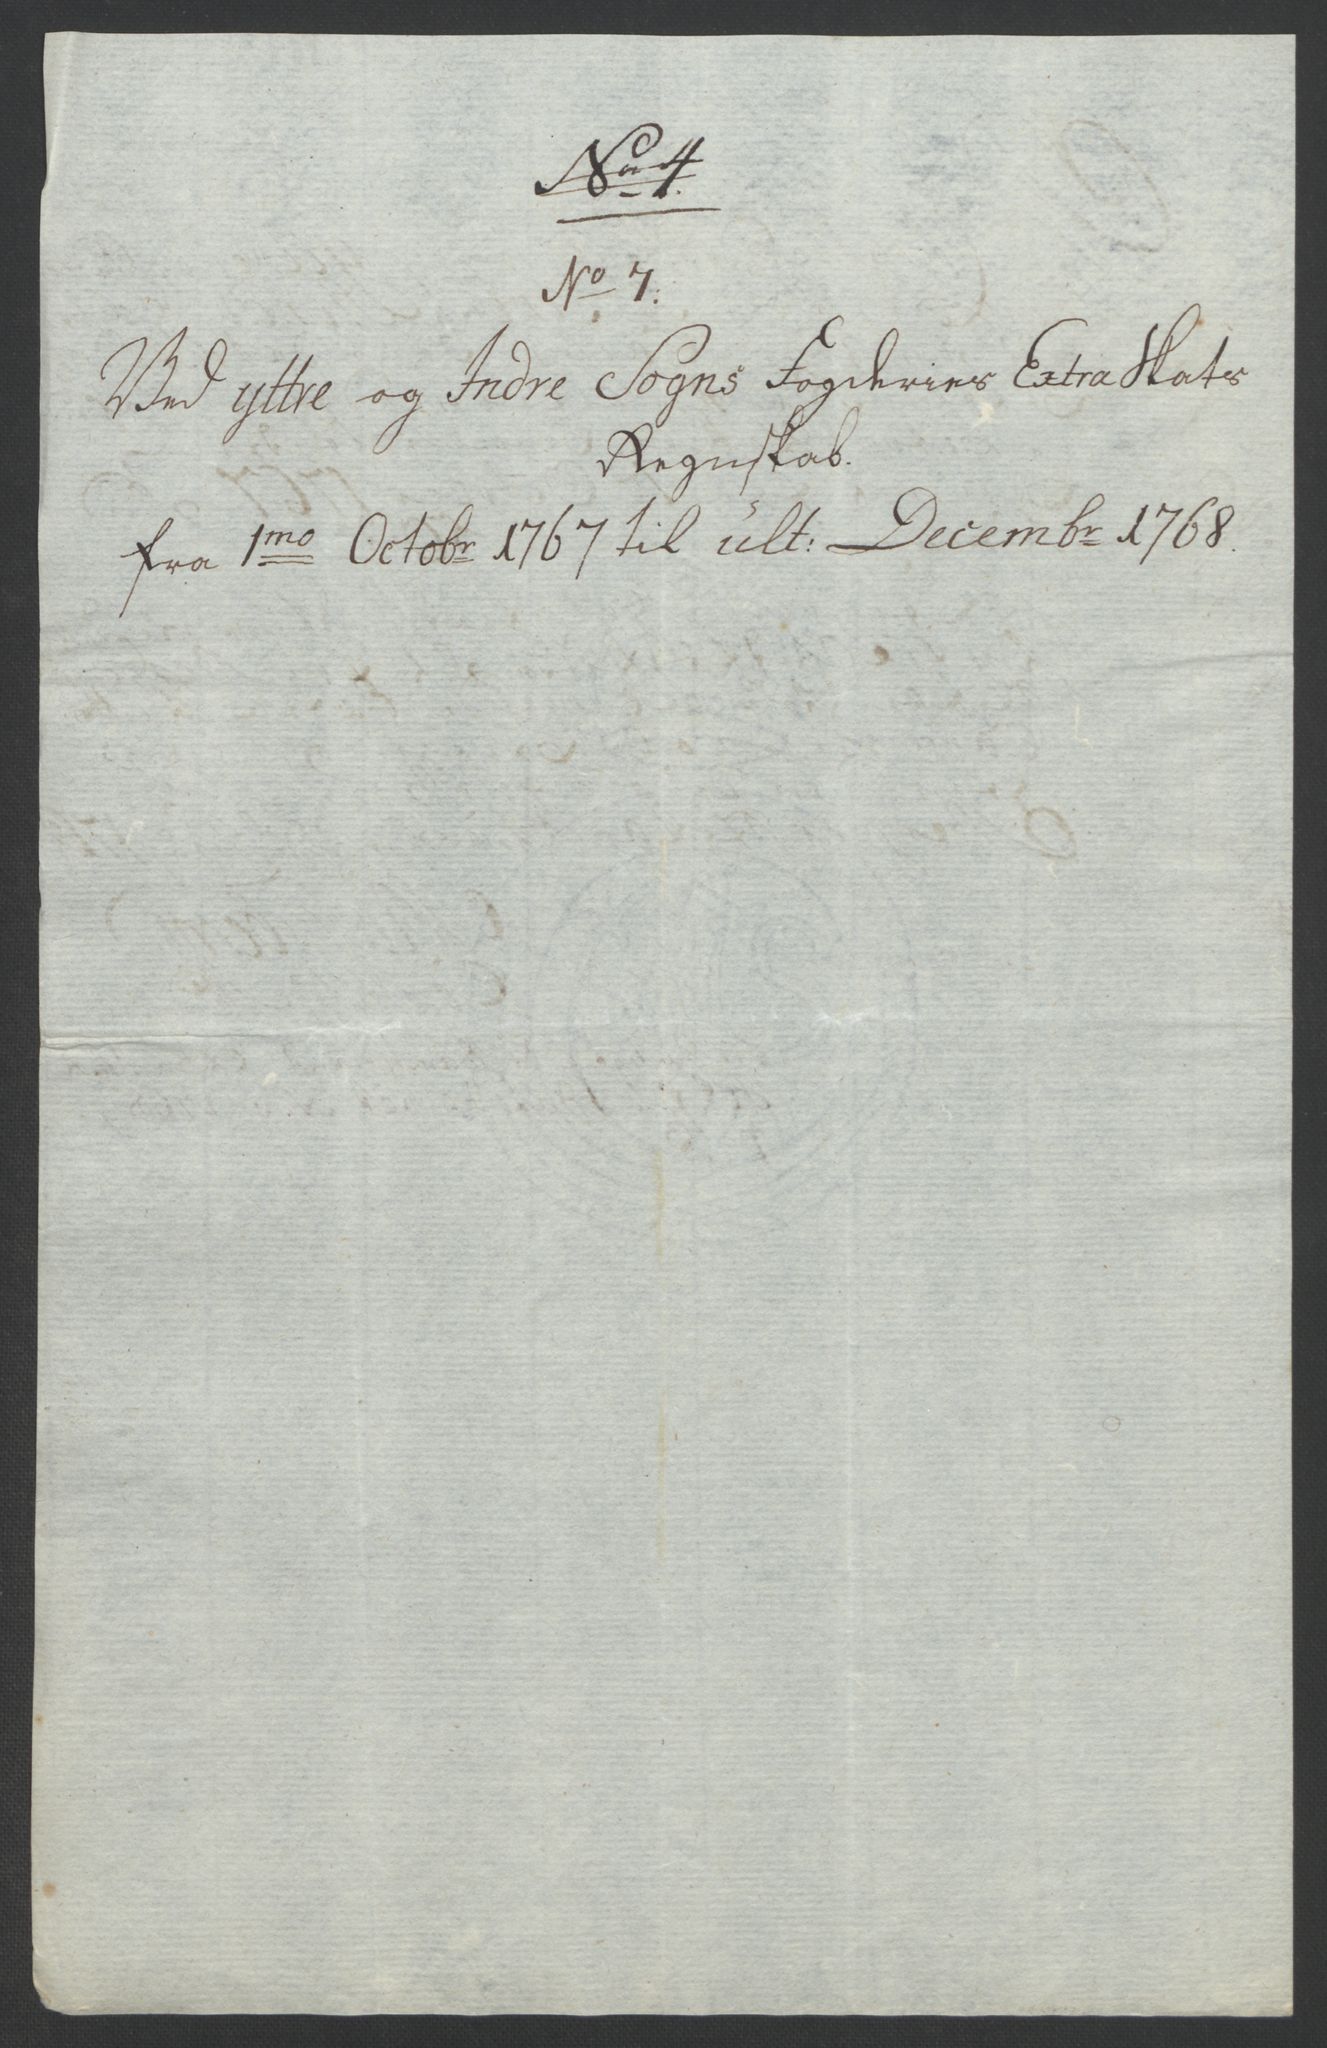 No 4.
No 7.
Ved yttre og Indre Sogns Fogderies Extra Skats
Regnskab.
fra 1mo Octobr 1767 til ult: Decembr 1768.